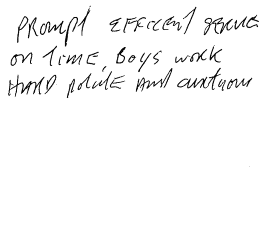 PROMPT EFFICENT SERVICE
ON TIME, BOYS WORK
HARD POLITE AND